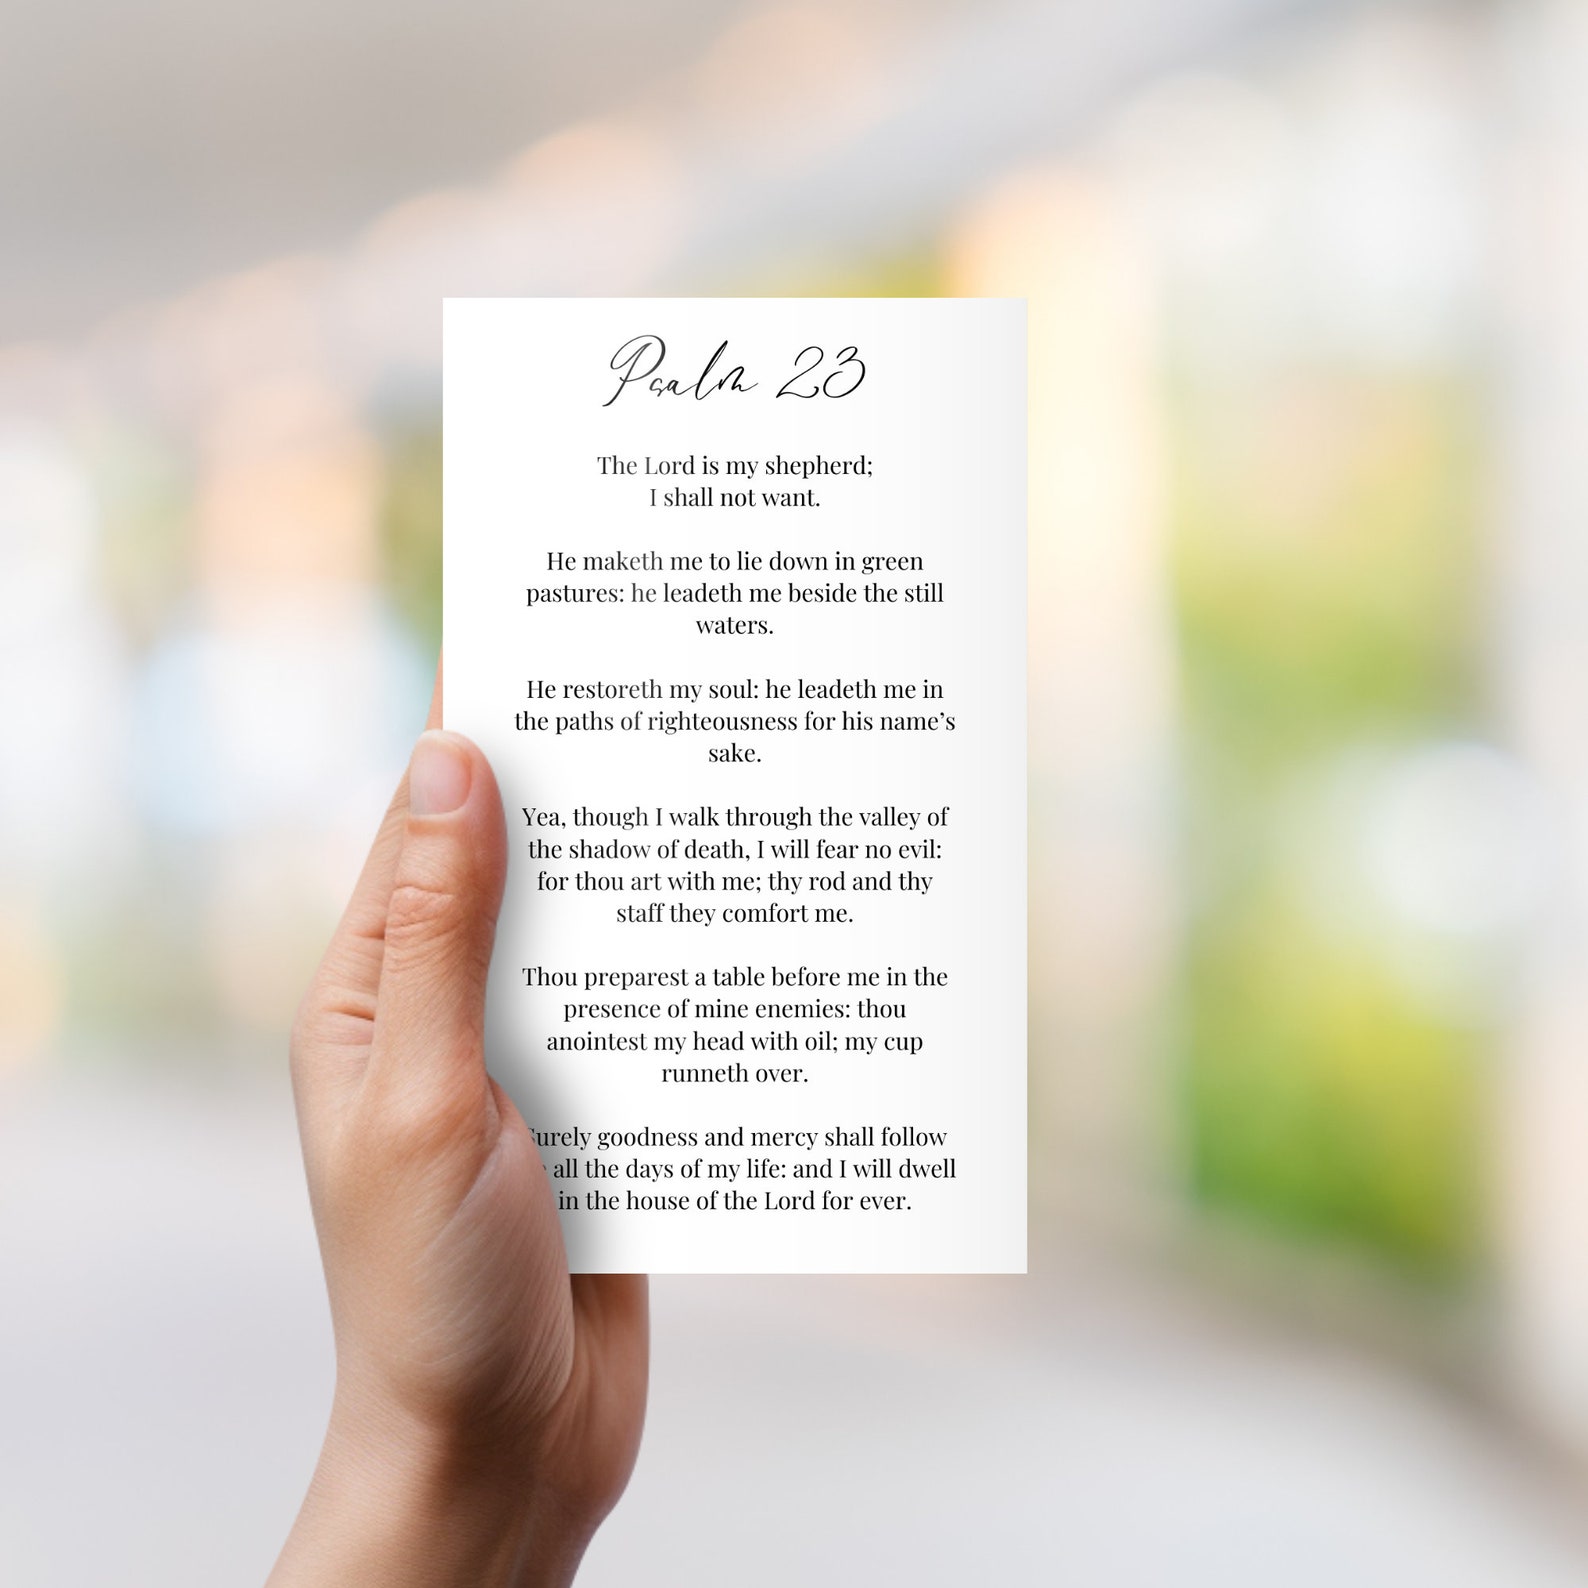 Psalm 23
The Lord is my shepherd;
I shall not want.
He maketh me to lie down in green
pastures: he leadeth me beside the still
waters.
He restoreth my soul: he leadeth me in
the paths of righteousness for his name’s
sake.
Yea, though I walk through the valley of
the shadow of death, I will fear no evil:
for thou art with me; thy rod and thy
staff they comfort me.
Thou preparest a table before me in the
presence of mine enemies: thou
anointest my head with oil; my cup
runneth over.
Surely goodness and mercy shall follow
all the days of my life: and I will dwell
in the house of the Lord for ever.